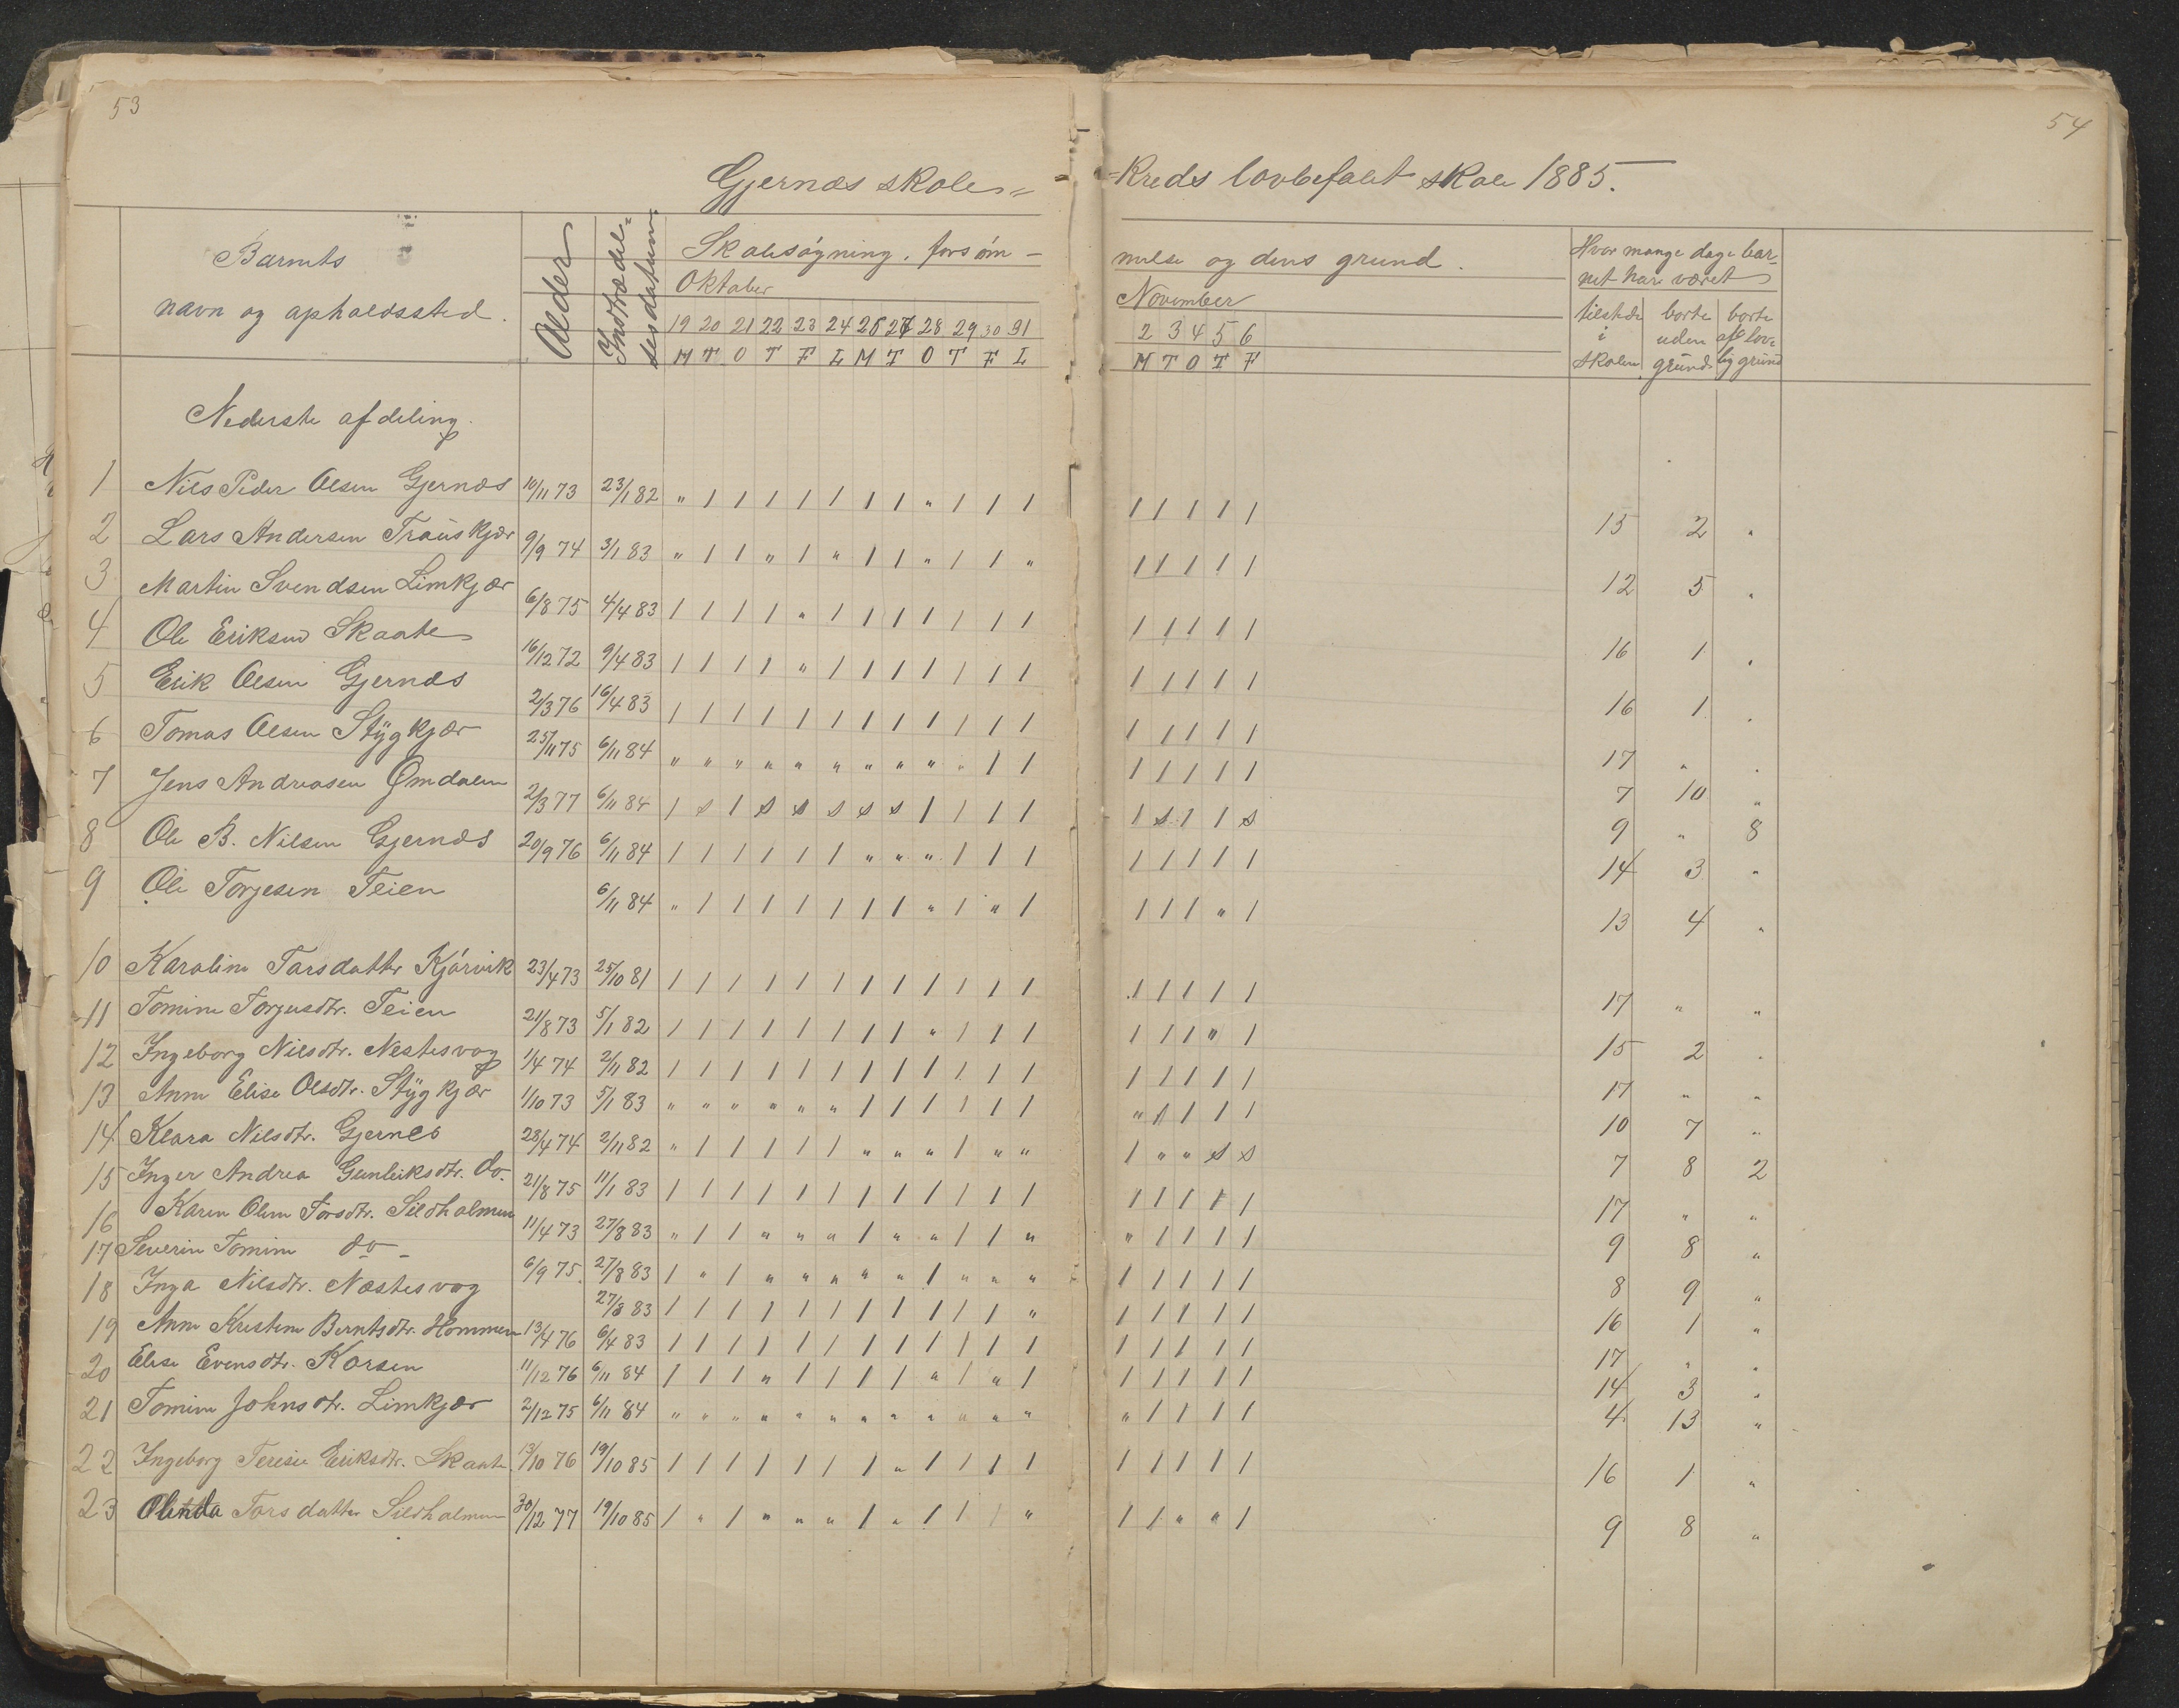 53
54
Gjernæs skole= =kreds lovbefalet skole 1885.
Barnets navn og opholdssted.
Alder
Indtrædel= sesdatum
Skolesøgning, forsøm- melse og dens grund.
Hvor mange dage bar- net har været
Oktober
November
tilstede i skolen
borte uden grund
borte af lov= lig grund
19 20 21 22 23 24 26 27 28 29 30 31
2 3 4 5 6
M T O T F L M T O T F L
M T O T F
Nederste afdeling.
1 Nils Peder Olsen Gjernæs 10/11 73 23/1 82 „ / / / / / / / „ / / / / / / / / 15 2 „
2 Lars Andersen Trauskjær 9/9 74 3/1 83 „ / / „ / „ / / „ / / „ / / / / / 12 5 „
3 Martin Svendsen Limkjær 6/8 75 4/4 83 / / / / „ / / / / / / / / / / / / 16 1 „
4 Ole Eriksen Skaate 16/12 72 9/4 83 / / / / „ / / / / / / / / / / / / 16 1 „
5 Erik Olsen Gjernæs 2/3 76 16/4 83 / / / / / / / / / / / / / / / / / 17 „ „
6 Tomas Olsen Stygkjær 25/11 75 6/11 84 „ „ „ „ „ „ „ „ „ „ / / / / / / / 7 10 „
7 Jens Andreasen Omdalen 2/3 77 6/11 84 / s / s s s s s / / / / / s / / s 9 „ 8
8 Ole B. Nilsen Gjernæs 20/9 76 6/11 84 / / / / / / „ „ „ / / / / / / / / 14 3 „
9 Ole Torjesen Teien 6/11 84 „ / / / / / / / „ / „ / / / / „ / 13 4 „
10 Karoline Tarsdatter Kjørvik 23/4 73 25/10 81 / / / / / / / / / / / / / / / / / 17 „ „
11 Tomine Torjusdtr. Teien 21/8 73 5/1 82 / / / / / / / / „ / / / / / / „ / 15 2 „
12 Ingeborg Nilsdtr. Nestesvog 1/4 74 2/11 82 / / / / / / / / / / / / / / / / / 17 „ „
13 Anne Elise Olsdtr. Stygkjær 1/10 73 5/1 83 „ „ „ „ „ „ / / / / / / „ / / / / 10 7 „
14 Klara Nilsdtr. Gjernes 28/4 74 2/11 82 „ / / / / / „ „ „ / „ „ / „ „ s s 7 8 2
15 Inger Andrea Gunleiksdtr. do. 21/8 75 11/1 83 / / / / / / / / / / / / / / / / / 17 „ „
16 Karen Oline Torsdtr. Sildholmen 11/4 73 27/8 83 „ / / „ „ „ / „ „ / / „ „ / / / / 9 8 „
17 Severin Tomine do- 6/9 75. 27/8 83 / „ / „ „ „ „ „ / „ „ „ / / / / / 8 9 „
18 Inga Nilsdtr. Næstesvog 27/8 83 / / / / / / / / / / / „ / / / / / 16 1 „
19 Anne Kristene Berntsdtr. Hommen 13/4 76 6/4 83 / / / / / / / / / / / / / / / / / 17 „ „
20 Elise Evensdtr. Korsen 11/12 76 6/11 84 / / / „ / / / / „ / „ / / / / / / 14 3 „
21 Tomine Johnsdtr. Limkjær 2/12 75 6/11 84 „ „ „ „ „ „ „ „ „ „ „ „ „ / / / / 4 13 „
22 Ingeborg Teresie Eriksdtr. Skaate 13/10 76 19/10 85 / / / / / / / „ / / / / / / / / / 16 1 „
23 Olinda Tarsdatter Sildholmen 30/12 77 19/10 85 / „ / „ „ „ / „ / / / „ / / „ „ / 9 8 „